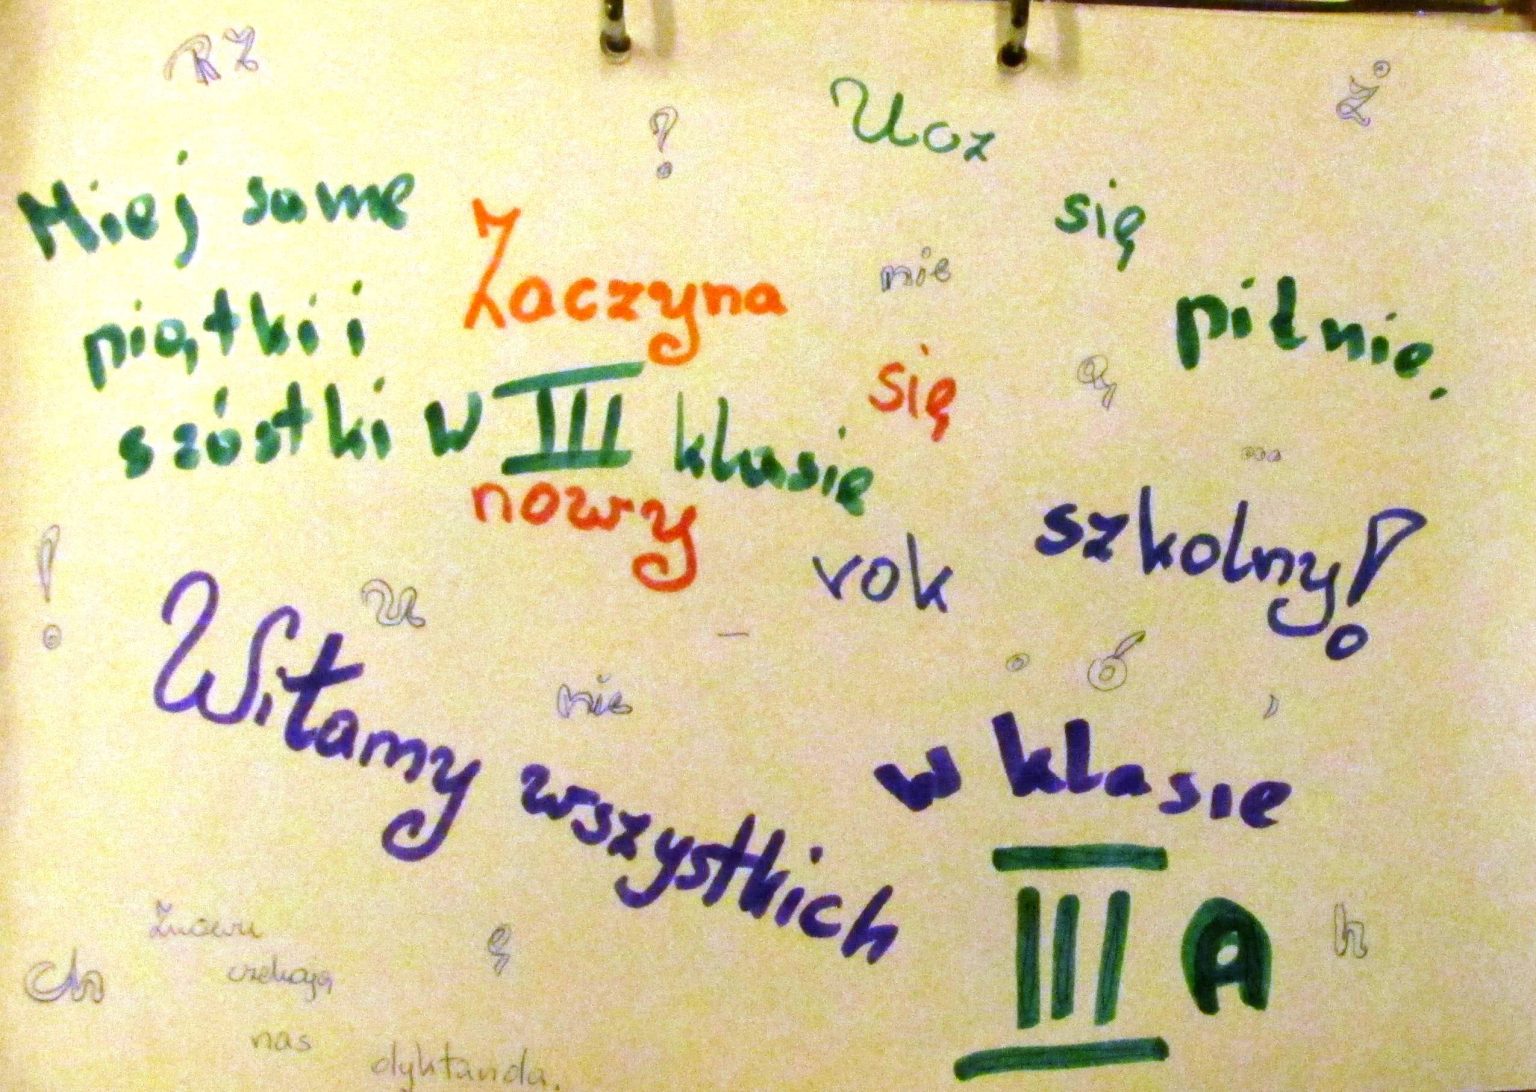 RZ
Ż
?
Ucz
się
pilnie.
Miej same
piątki i
szóstki w III klasie
Zaczyna
się
nowy
rok
szkolny!
nie
Ą
!
U
-
nie
ó
,
Witamy wszystkich
w klasie
III A
h
ę
Ch
Znowu
czekają
nas
dyktanda.